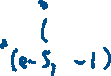 (e-5, -1)